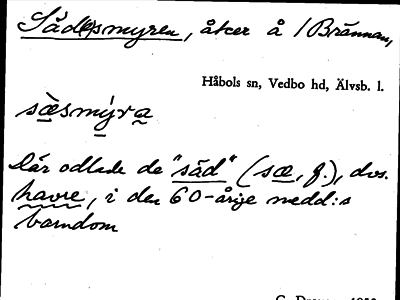 Sädesmyren, åker å 1 Brännan,
Håbols sn, Vedbo hd, Älvsb. l.
sæ̀smýra
Där odlade de "säd" (sæ, f.), dvs.
havre, i den 60-årige medd:s
barndom